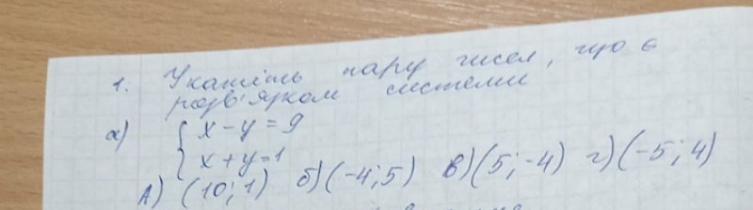 1. Укажіть пару чисел, що є
розв'язком системи
а) { x - y = 9
{ x + y = 1
А) (10; 1) б) (-4; 5) в) (5; -4) г) (-5; 4)